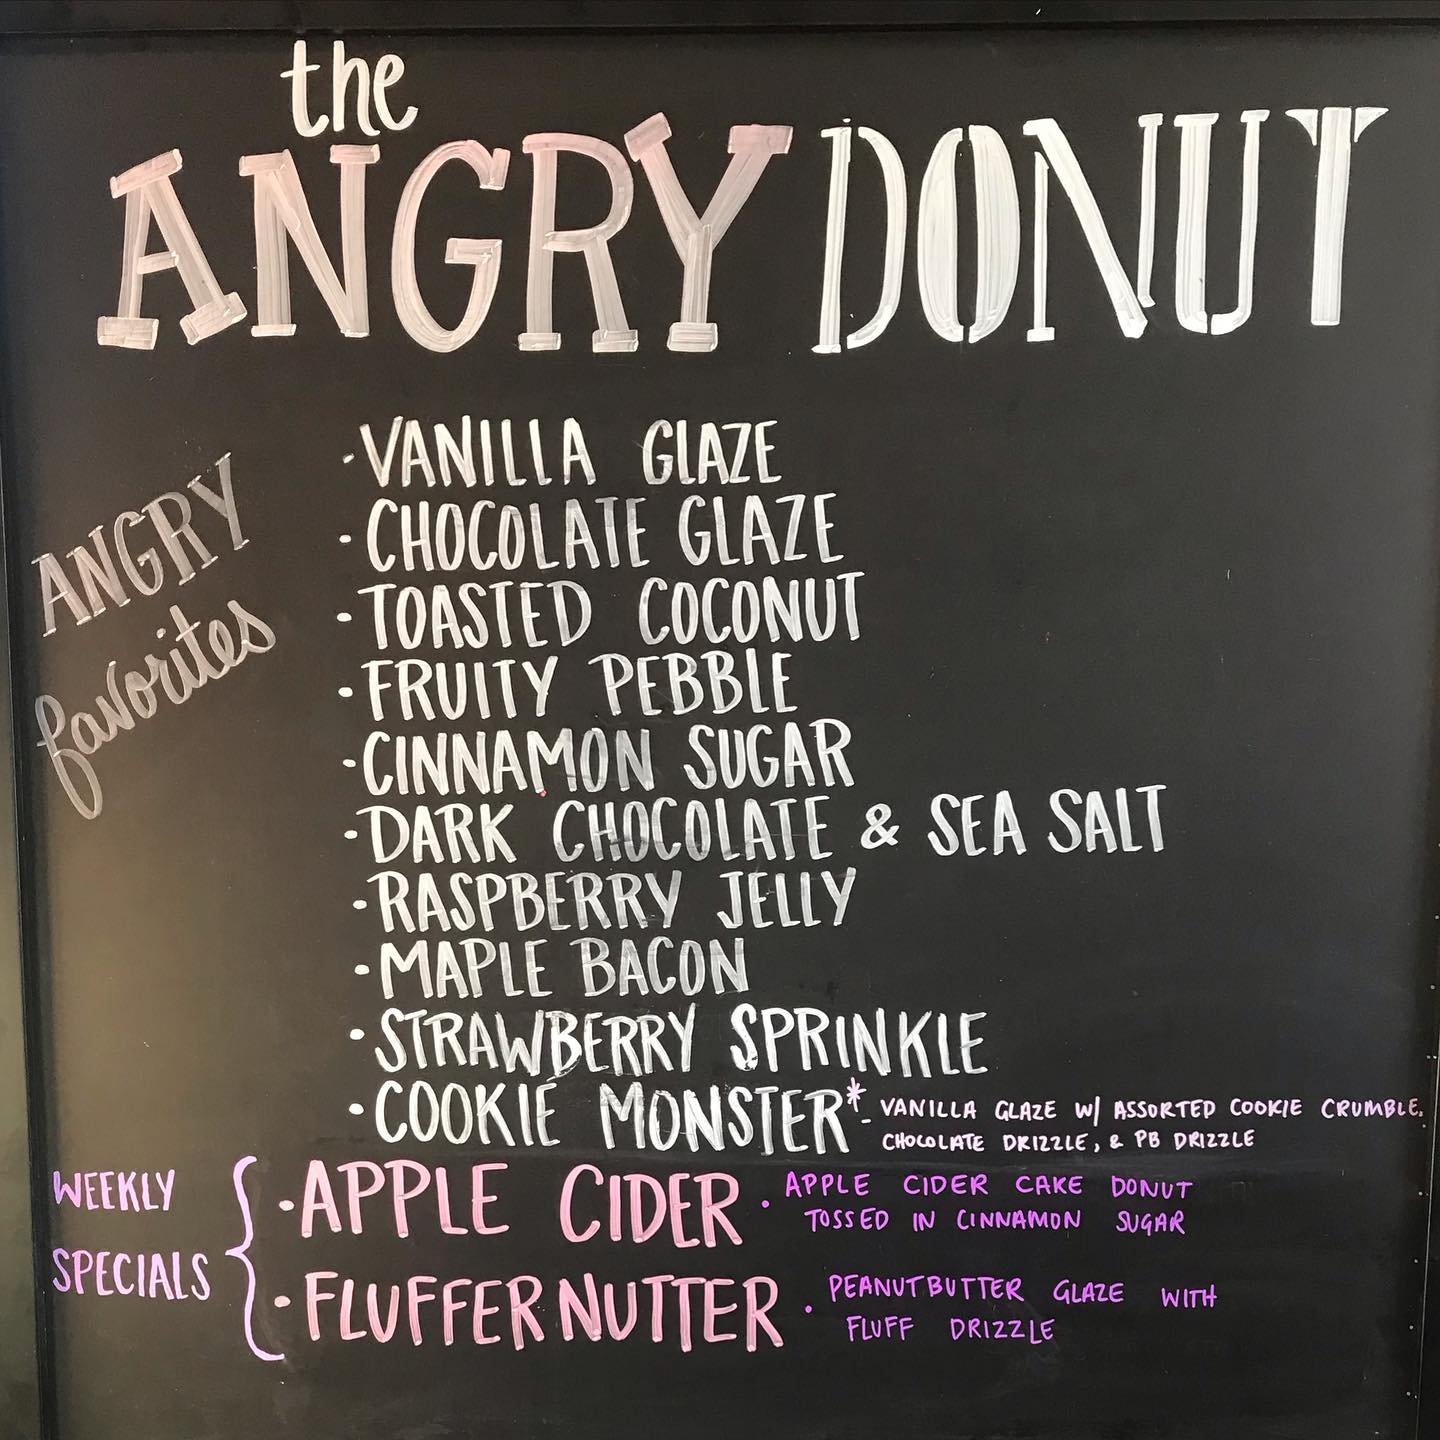 the
ANGRY DONUT
ANGRY
favorites
·VANILLA GLAZE
·CHOCOLATE GLAZE
·TOASTED COCONUT
·FRUITY PEBBLE
·CINNAMON SUGAR
·DARK CHOCOLATE & SEA SALT
·RASPBERRY JELLY
·MAPLE BACON
·STRAWBERRY SPRINKLE
·COOKIE MONSTER*- VANILLA GLAZE W/ ASSORTED COOKIE CRUMBLE,
CHOCOLATE DRIZZLE, & PB DRIZZLE
WEEKLY
SPECIALS
·APPLE CIDER · APPLE CIDER CAKE DONUT
TOSSED IN CINNAMON SUGAR
·FLUFFERNUTTER · PEANUTBUTTER GLAZE WITH
FLUFF DRIZZLE